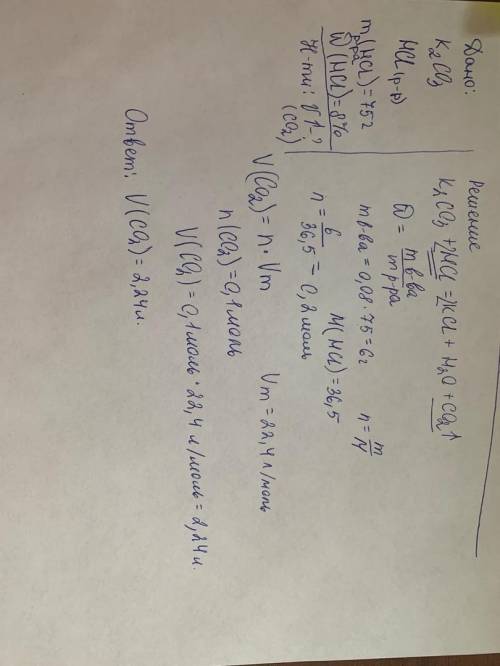 Дано:
K2CO3
HCl (р-р)
m р-ра (HCl) = 75г
ω (HCl) = 8%
Н-ти: V↑-?
(CO2)
Решение
K2CO3 + 2HCl = 2KCl + H2O + CO2↑
ω = m в-ва / m р-ра
m в-ва = 0,08 · 75 = 6г n = m/M
M(HCl) = 36,5
n = 6/36,5 = 0,2 моль
V(CO2) = n · Vm Vm = 22,4 л/моль
n(CO2) = 0,1 моль
V(CO2) = 0,1 моль · 22,4 л/моль = 2,24 л.
Ответ: V(CO2) = 2,24 л.